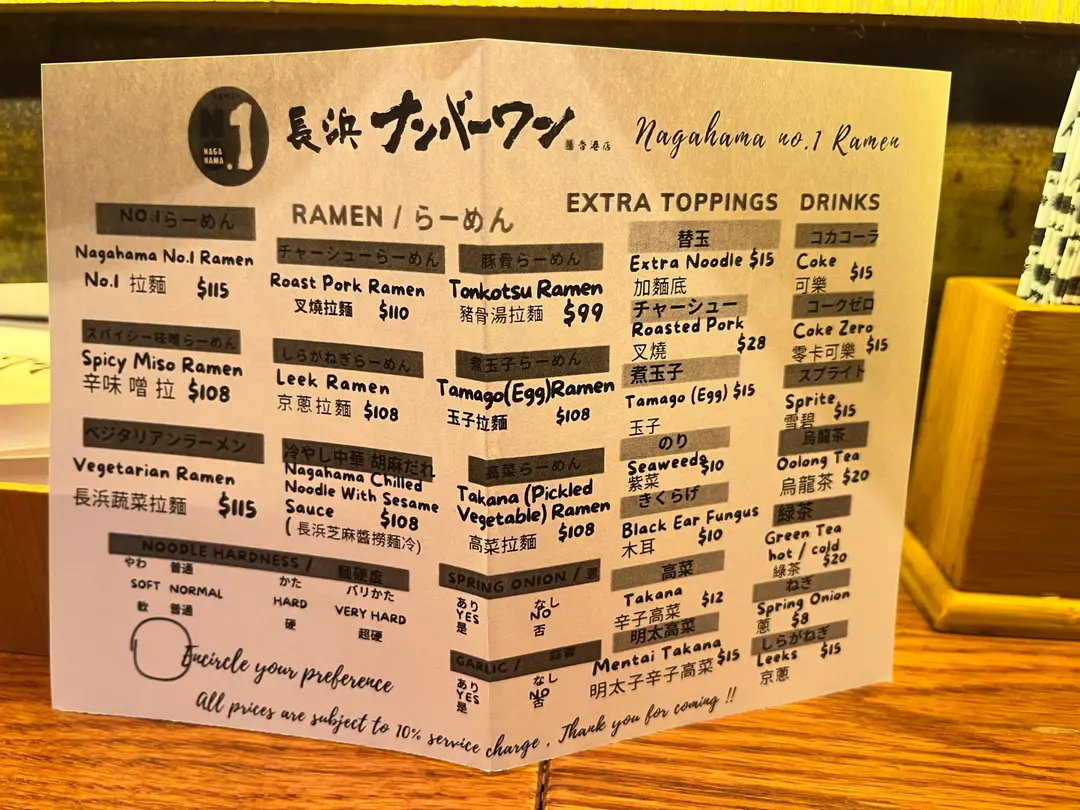 No.1
NAGA
HAMA
長浜 ナンバーワン
香港店
Nagahama no.1 Ramen
RAMEN / らーめん
NO.1らーめん
Nagahama No.1 Ramen
No.1 拉麵 $115
スパイシー味噌らーめん
Spicy Miso Ramen
辛味 噌 拉 $108
ベジタリアンラーメン
Vegetarian Ramen
長浜蔬菜拉麵 $115
チャーシューらーめん
Roast Pork Ramen
叉燒拉麵 $110
しらがねぎらーめん
Leek Ramen
京蔥拉麵 $108
冷やし中華 胡麻だれ
Nagahama Chilled
Noodle With Sesame
Sauce $108
( 長浜芝麻醬撈麵冷)
豚骨らーめん
Tonkotsu Ramen
豬骨湯拉麵 $99
煮玉子らーめん
Tamago(Egg)Ramen
玉子拉麵 $108
高菜らーめん
Takana (Pickled
Vegetable) Ramen
高菜拉麵 $108
EXTRA TOPPINGS
替玉
Extra Noodle $15
加麵底
チャーシュー
Roasted Pork
叉燒 $28
煮玉子
Tamago (Egg) $15
玉子
のり
Seaweeds $10
紫菜
きくらげ
Black Ear Fungus
木耳 $10
高菜
Takana $12
辛子高菜
明太高菜
Mentai Takana $15
明太子辛子高菜
DRINKS
コカコーラ
Coke $15
可樂
コークゼロ
Coke Zero
零卡可樂 $15
スプライト
Sprite $15
雪碧
烏龍茶
Oolong Tea
烏龍茶 $20
緑茶
Green Tea
hot / cold
緑茶 $20
ねぎ
Spring Onion
蔥 $8
しらがねぎ
Leeks $15
京蔥
NOODLE HARDNESS / 麵硬度
やわ 普通 かた バリかた
SOFT NORMAL HARD VERY HARD
軟 普通 硬 超硬
SPRING ONION / 蔥
あり なし
YES NO
是 否
GARLIC /
あり なし
YES NO
是 否
Encircle your preference
All prices are subject to 10% service charge . Thank you for coming !!